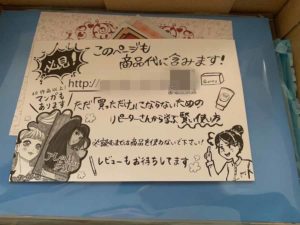 必見!
このページも
商品代に含みます!
http://
マンガも
あります
ただ「買っただけ」にならないための
リピーターさんから学ぶ賢い使い方
必読するまでは商品を使わないで下さい!
レビューもお待ちしてます